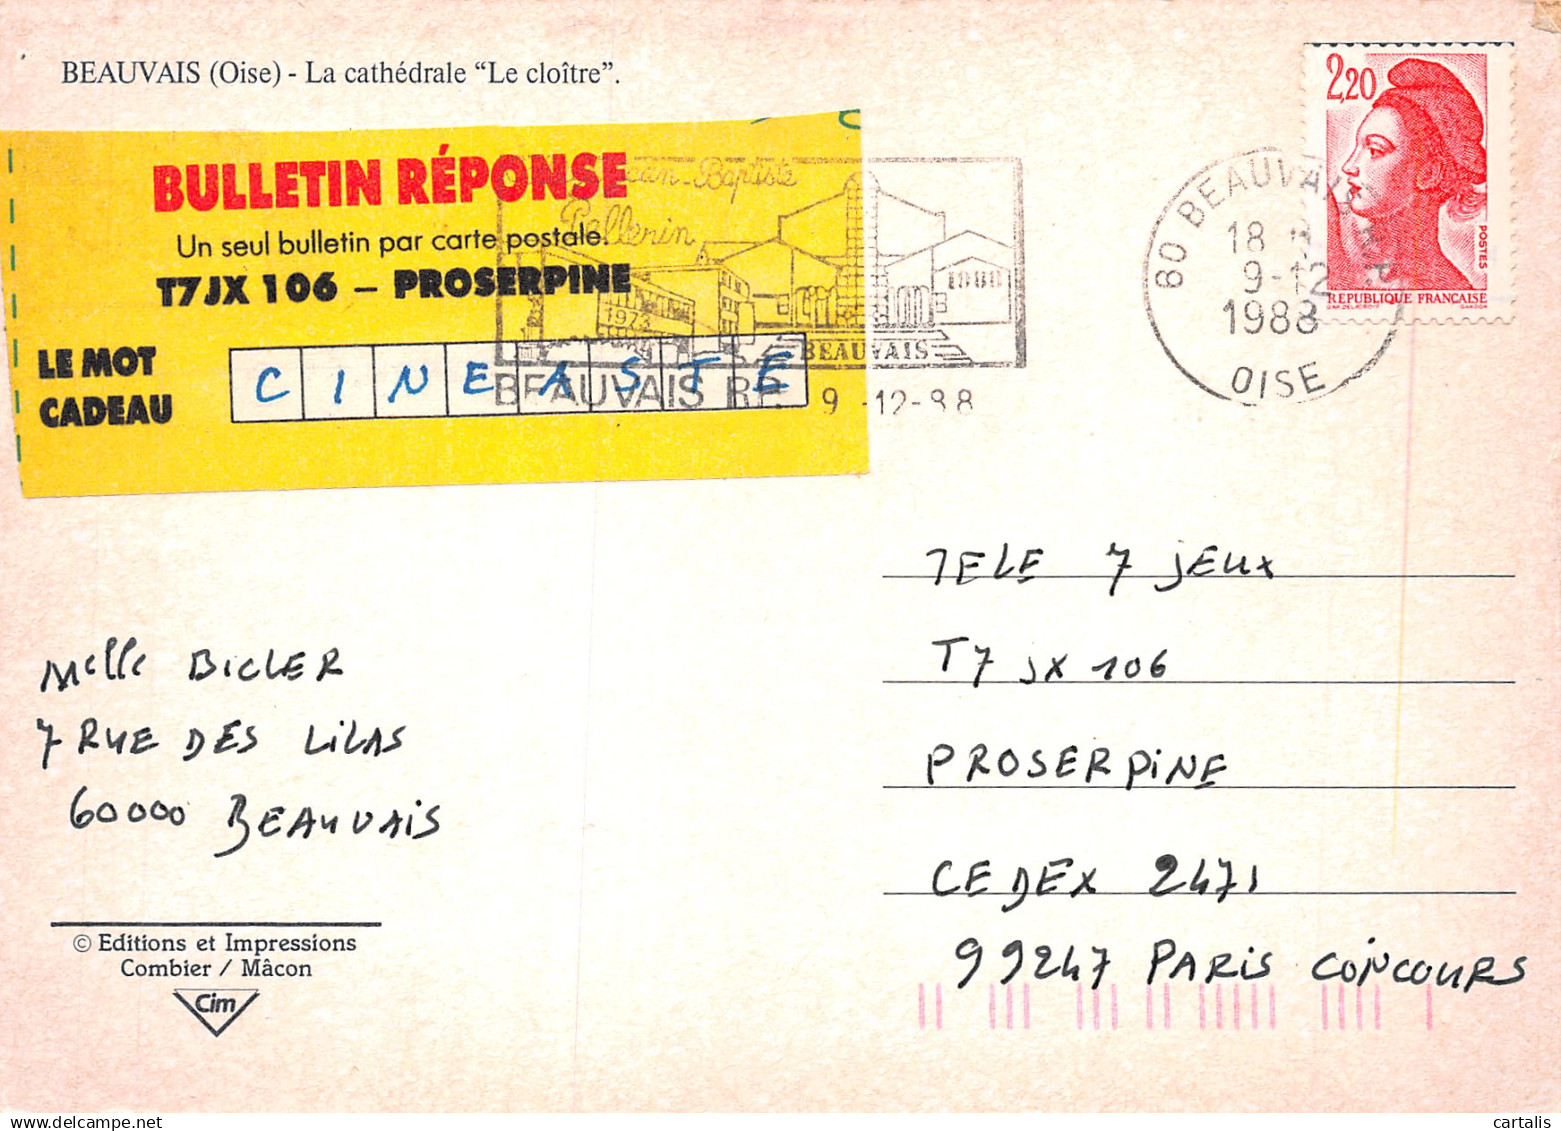 BEAUVAIS (Oise) - La cathédrale “Le cloître”.
BULLETIN RÉPONSE
Un seul bulletin par carte postale.
T7JX 106 – PROSERPINE
LE MOT
CADEAU
CINEASTE
Jean-Baptiste
Pellerin
1973
1988
BEAUVAIS
BEAUVAIS RP 9-12-88
60 BEAUVAIS RP
18 H
9-12
1988
OISE
2,20
POSTES
REPUBLIQUE FRANCAISE
TELE 7 JEUX
T7 JX 106
PROSERPINE
CEDEX 2471
99247 PARIS CONCOURS
Melle BICLER
7 RUE DES LILAS
60000 BEAUVAIS
© Editions et Impressions
Combier / Mâcon
Cim
www.delcampe.net
cartalis